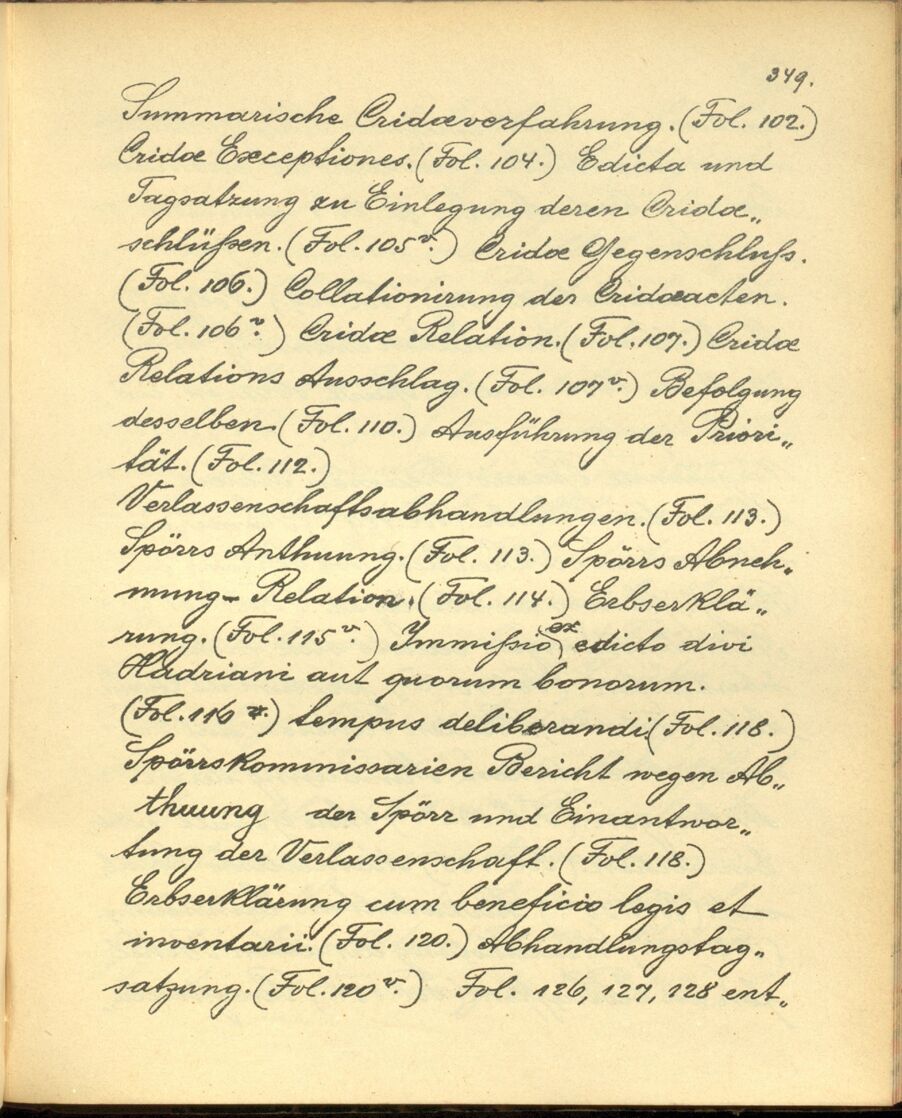 349.
Summarische Cridæverfahrung. (Fol. 102.)
Cridæ Exceptiones. (Fol. 104.) Edicta und
Tagsatzung zu Einlegung deren Cridæ„
schlüßen. (Fol. 105 v.) Cridæ Gegenschluß.
(Fol. 106.) Collationirung der Cridæacten.
(Fol. 106 v.) Cridæ Relation. (Fol. 107.) Cridæ
Relations Ausschlag. (Fol. 107 v.) Befolgung
desselben. (Fol. 110.) Ausführung der Priori„
tät. (Fol. 112.)
Verlassenschaftsabhandlungen. (Fol. 113.)
Spörrs Anthuung. (Fol. 113.) Spörrs Abneh„
mung - Relation. (Fol. 114.) Erbserklä„
rung. (Fol. 115 v.) Immißio ex edicto divi
Hadriani aut quorum bonorum.
(Fol. 116 v.) tempus deliberandi. (Fol. 118.)
Spörrskommissarien Bericht wegen Ab„
thuung der Spörr und Einantwor„
tung der Verlassenschaft. (Fol. 118.)
Erbserklärung cum beneficio legis et
inventarii. (Fol. 120.) Abhandlungstag„
satzung. (Fol. 120 v.) Fol. 126, 127, 128 ent„